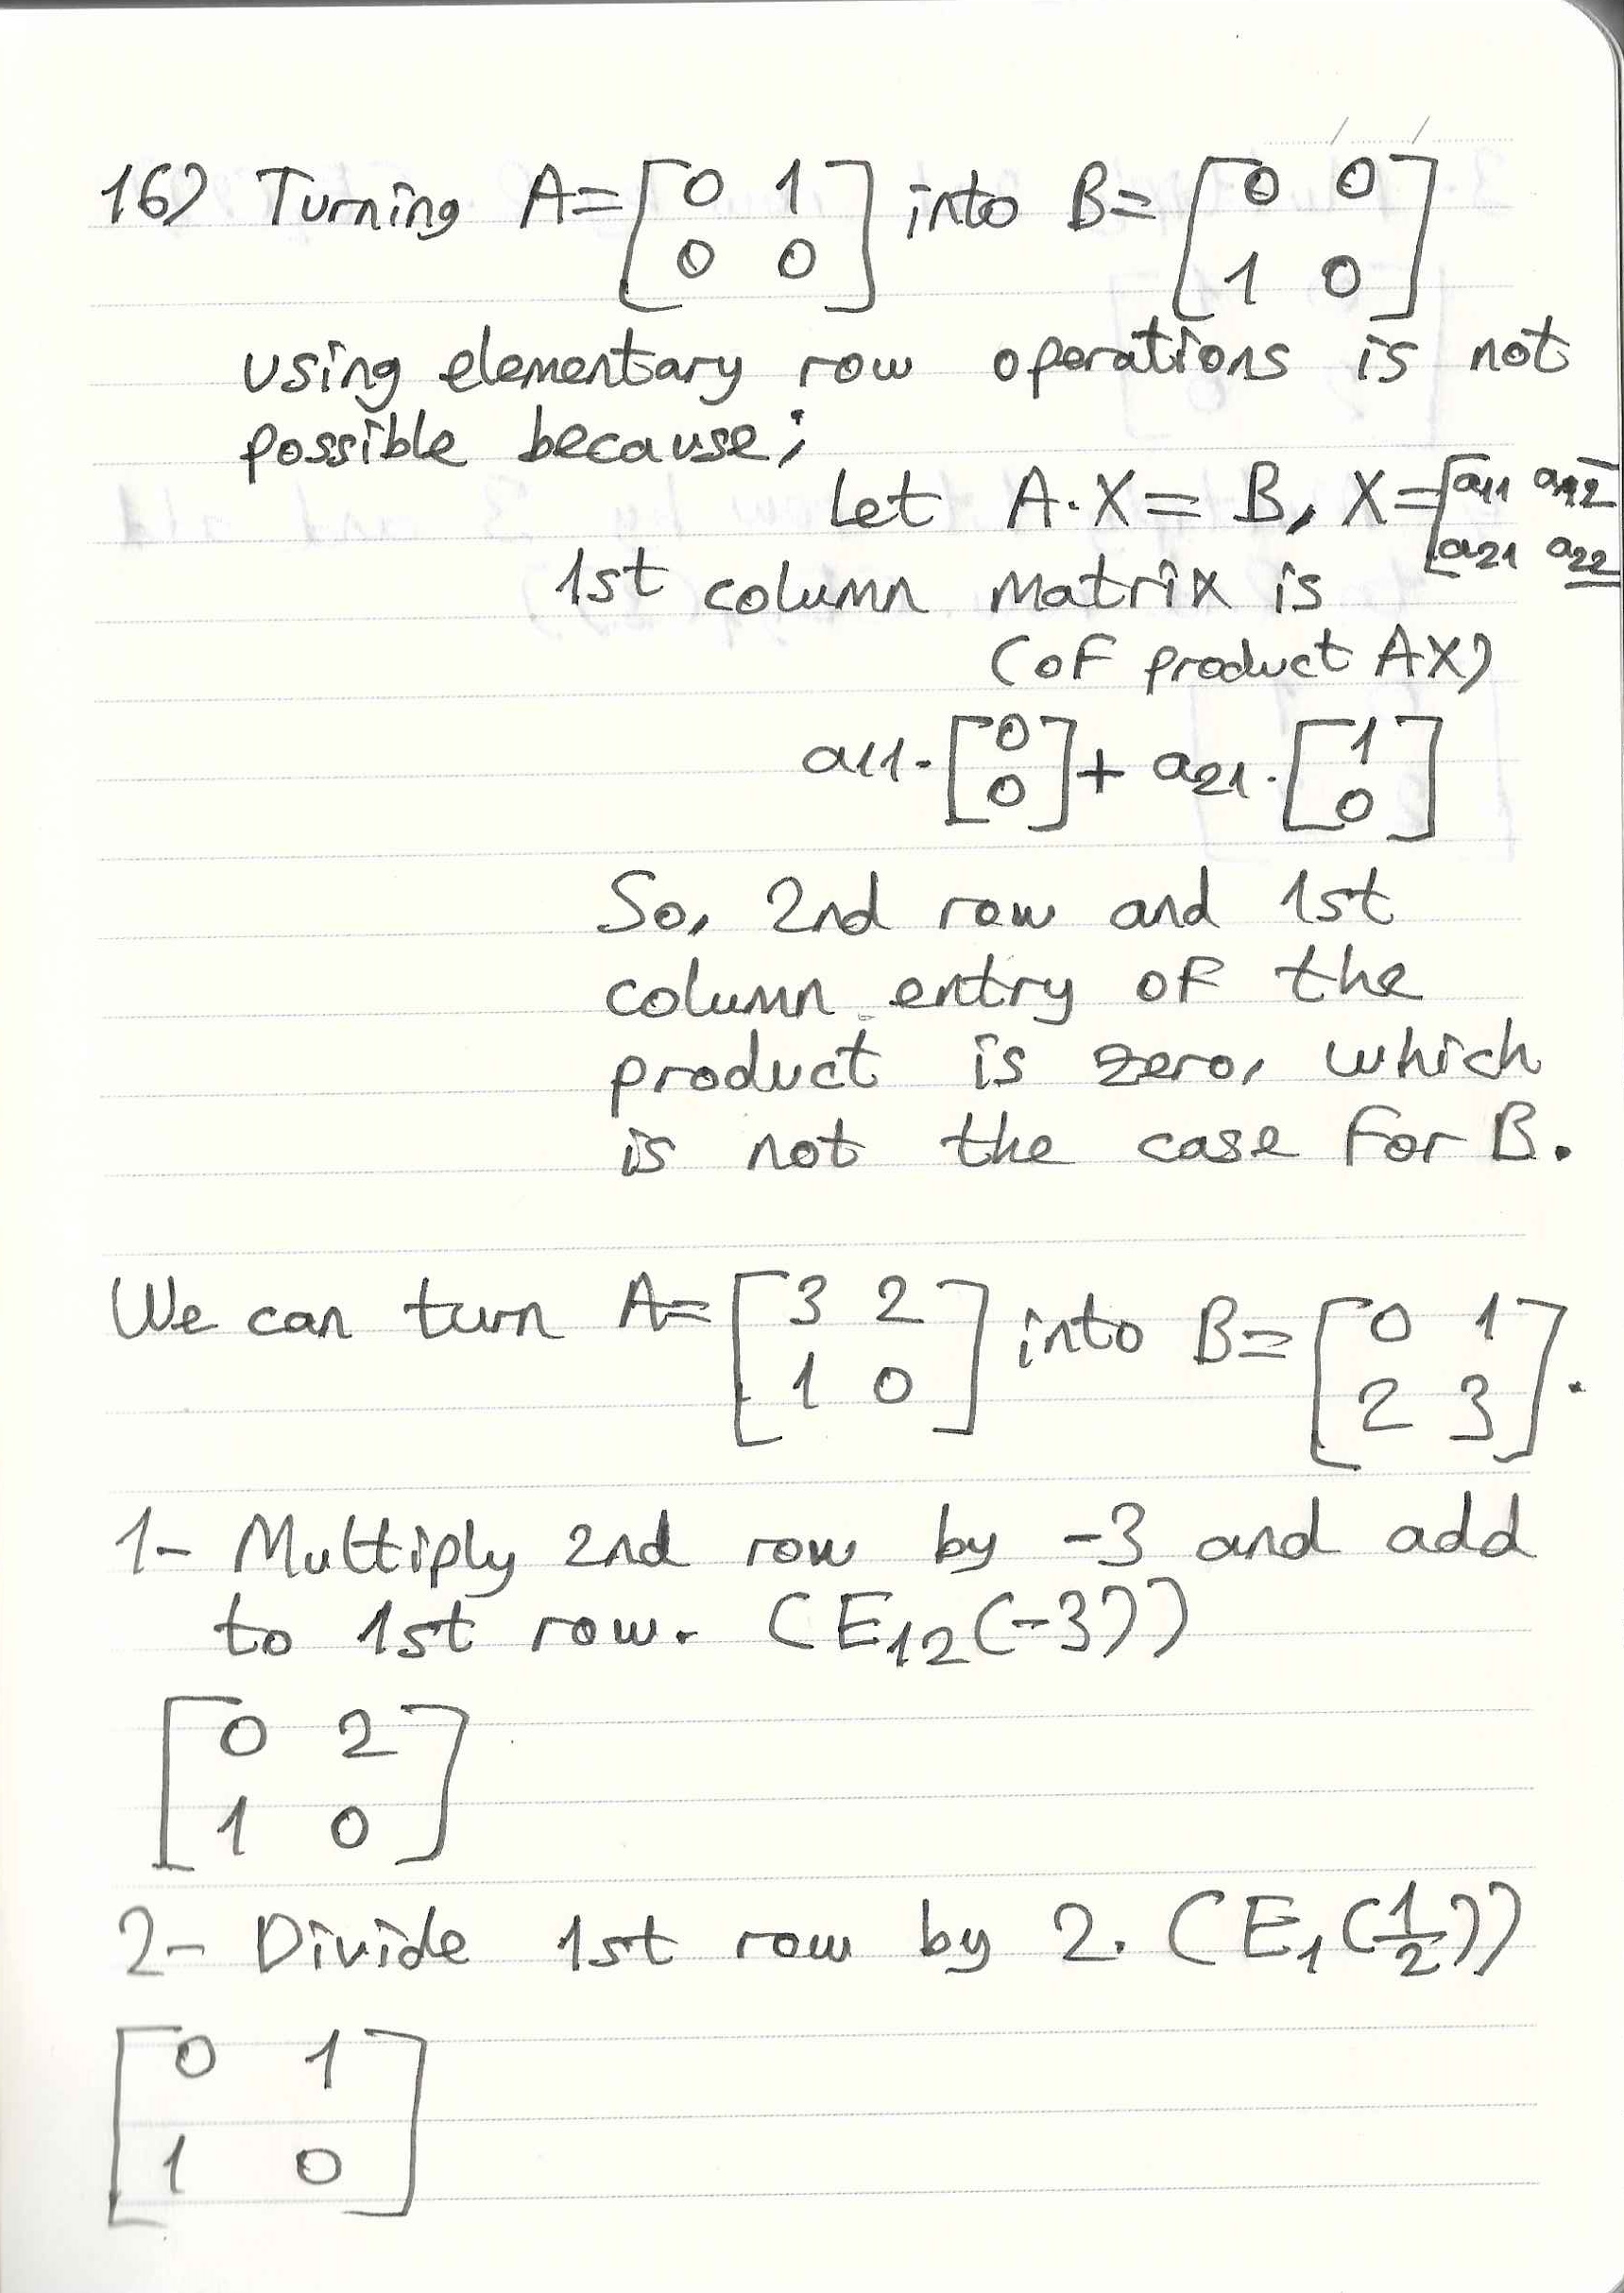 16) Turning A=[0 1
0 0] into B=[0 0
1 0]
using elementary row operations is not
possible because;
Let A.X=B, X=[a11 a12
a21 a22
1st column matrix is
(of product AX)
a11.[0
0]+ a21.[1
0]
So, 2nd row and 1st
column entry of the
product is zero, which
is not the case for B.
We can turn A=[3 2
1 0] into B=[0 1
2 3].
1- Multiply 2nd row by -3 and add
to 1st row. (E12(-3))
[0 2
1 0]
2- Divide 1st row by 2. (E1(1/2))
[0 1
1 0]